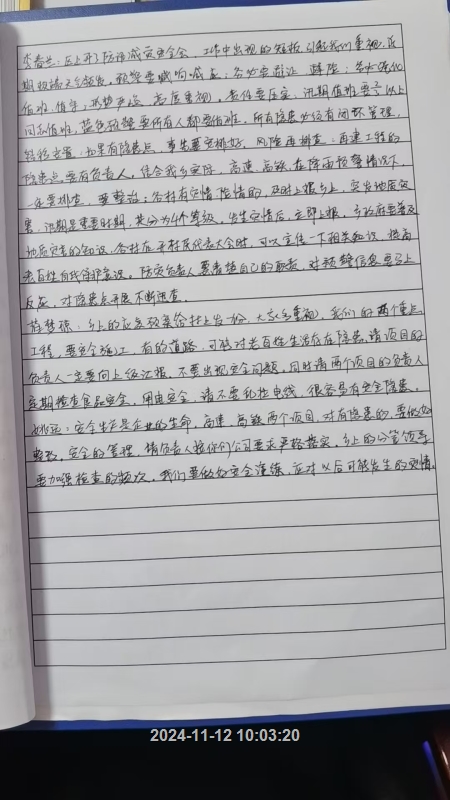 李春兰：区上开了防汛减灾安全会，工作中出现的短板，引起我们重视，汛
期极端天气频发，预警要喊响、喊应；各村要避让、降险；各村强化
值班值守，形势严峻，高度重视，责任要压实，汛期值班要2个以上
同志值班，蓝色预警要所有人都要值班，所有隐患必须有闭环管理，
转移安置，如果有隐患点，事先要安排好，风险再排查，再建工程的
隐患点要有负责人，结合我乡实际，高速、高铁，在降雨预警情况下，
一定要排查，要整治；各村有灾情险情的，及时上报乡上，突发地质灾
害，汛期是重要时期，共分为4个等级，发生灾情后，立即上报，乡政府要普及
地质灾害的知识，各村在开村民代表大会时，可以宣传一下相关知识，提高
老百性自我保护意识，防灾负责人要清楚自己的职责，对预警信息要马上
反应，对隐患点开展不断巡查。
：乡上的应急政策给村上发一份，大家多重视，我们的两个重点
工程，要安全施工，有的道路，可能对老百姓生活存在隐患，请项目的
负责人一定要向上级汇报，不要出现安全问题，同时请两个项目的负责人
定期检查食品安全，用电安全，请不要乱拉电线，很容易有安全隐患。
：安全生产是企业的生命，高速、高铁两个项目，对有隐患的，要做好
整改，安全的管理，请负责人按你们公司要求严格落实，乡上的分管领导
要加强检查的频次，我们要做好安全演练，应对以后可能发生的灾情。
2024-11-12 10:03:20